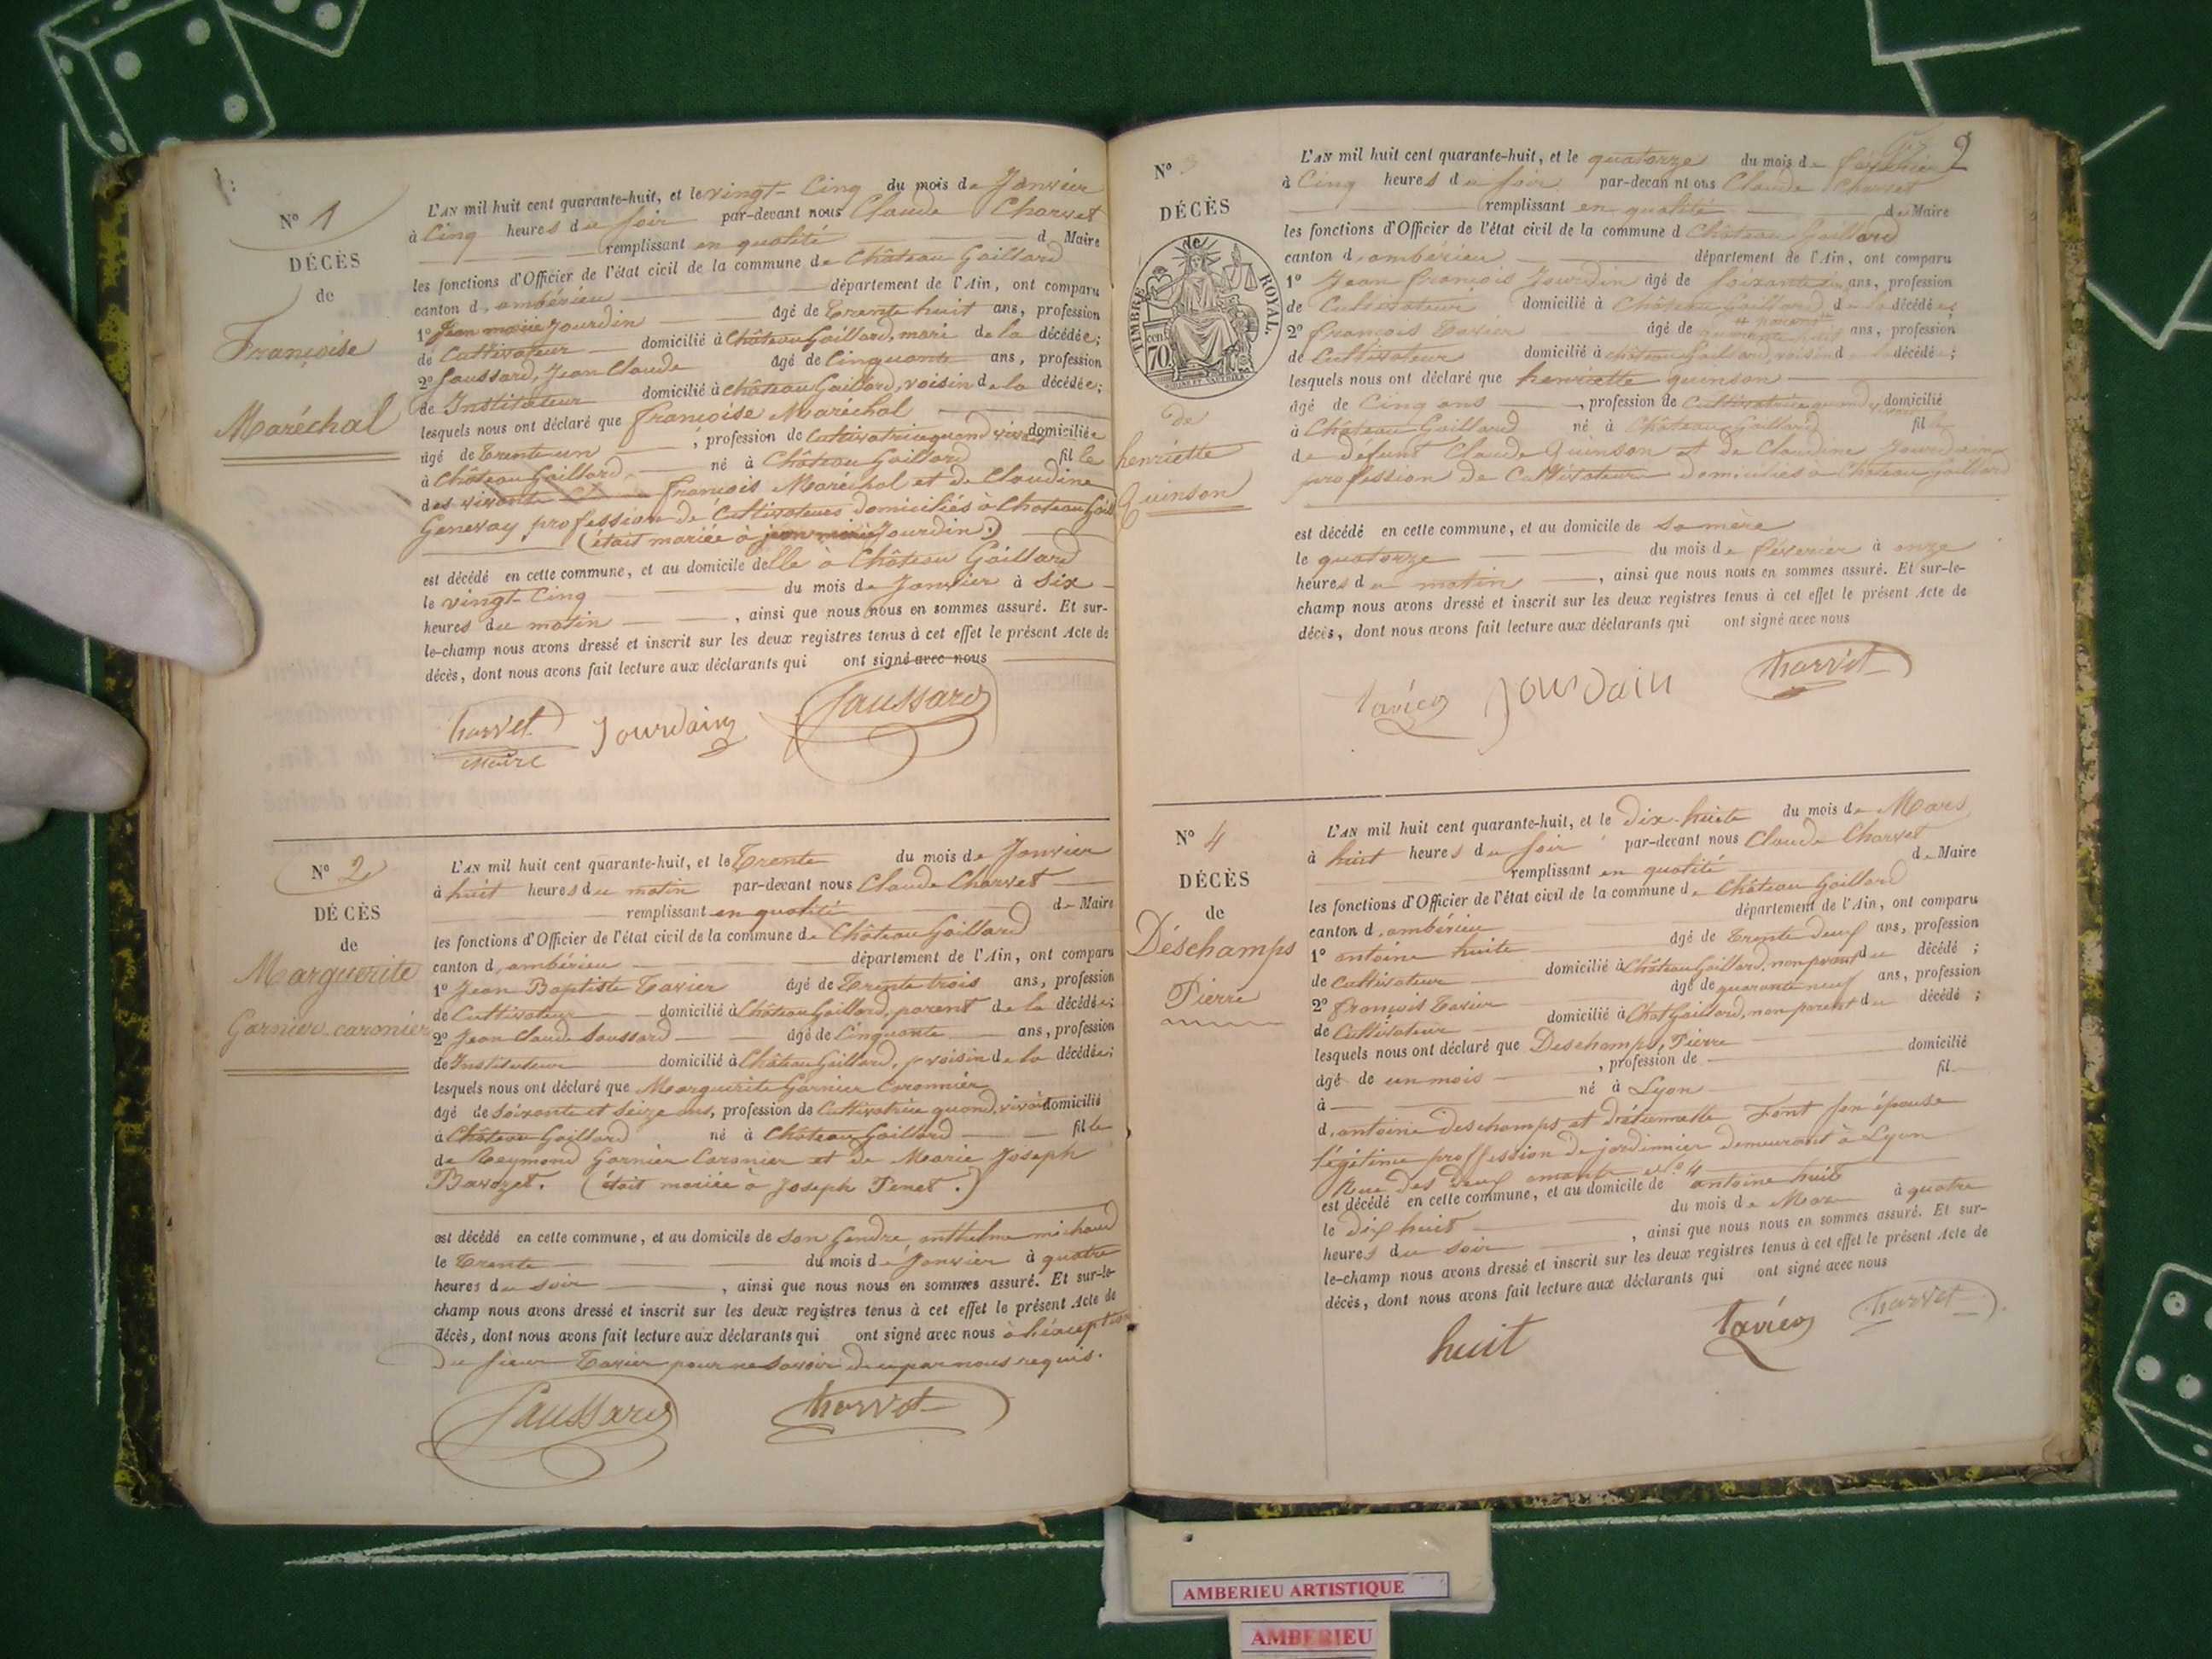 Nº 1
DÉCÈS
de
Françoise
Maréchal
L'AN mil huit cent quarante-huit, et le vingt-Cinq du mois de Janvier
à Cinq heures du soir par-devant nous Claude Charvet
remplissant en qualité de Maire
les fonctions d'Officier de l'état civil de la commune de Château Gaillard
canton d'ambérieu département de l'Ain, ont comparu
1º Jean marie Jourdin âgé de Trente huit ans, profession
de Cultivateur domicilié à Château Gaillard, mari de la décédée;
2º Saussard, Jean Claude âgé de Cinquante ans, profession
de Instituteur domicilié à Château Gaillard, voisin de la décédée;
lesquels nous ont déclaré que françoise Maréchal
âgé de Trente un, profession de Cultivatrice quand vivait domiciliée
à Château Gaillard né à Château Gaillard fille
des vivants françois Maréchal et de Claudine
Genevay profession de Cultivateurs domiciliés à Chateau Gaill
(était mariée à jean marie Jourdin.)
est décédé en cette commune, et au domicile delle à Château Gaillard
le vingt-Cinq du mois de Janvier à Six
heures du matin, ainsi que nous nous en sommes assuré. Et sur-
le-champ nous avons dressé et inscrit sur les deux registres tenus à cet effet le présent Acte de
décès, dont nous avons fait lecture aux déclarants qui ont signé avec nous
Charvet Jourdain Saussard
maire
Nº 2
DÉCÈS
de
Marguerite
Garnier-caronier
L'AN mil huit cent quarante-huit, et le Trente du mois de Janvier
à huit heures du matin par-devant nous Claude Charvet
remplissant en qualité de Maire
les fonctions d'Officier de l'état civil de la commune de Château Gaillard
canton d'ambérieu département de l'Ain, ont comparu
1º Jean Baptiste Tavier âgé de Trente trois ans, profession
de Cultivateur domicilié à Château Gaillard, parent de la décédée;
2º Jean Claude Saussard âgé de Cinquante ans, profession
de Instituteur domicilié à Château Gaillard, voisin de la décédée;
lesquels nous ont déclaré que Marguerite Garnier Caronnier
âgé de Soixante et Seize ans, profession de Cultivatrice quand vivait domicilié
à Château Gaillard né à Château Gaillard fille
de Reymond Garnier Caronier et de Marie Joseph
Bavozet. (était mariée à Joseph Penet.)
est décédé en cette commune, et au domicile de son Gendre anthelme michaud
le Trente du mois de Janvier à quatre
heures du soir, ainsi que nous nous en sommes assuré. Et sur-le-
champ nous avons dressé et inscrit sur les deux registres tenus à cet effet le présent Acte de
décès, dont nous avons fait lecture aux déclarants qui ont signé avec nous à l'éxception
du sieur Tavier pour ne savoir de ce par nous requis.
Saussard Charvet
2
Nº 3
DÉCÈS
TIMBRE ROYAL.
70 cen
de
henriette
Quinson
L'AN mil huit cent quarante-huit, et le quatorze du mois de février
à Cinq heures du soir par-devan nt ous Claude Charvet
remplissant en qualité de Maire
les fonctions d'Officier de l'état civil de la commune d Château Gaillard
canton d'ambérieu département de l'Ain, ont comparu
1º Jean françois Jourdin âgé de Soixante ans, profession
de Cultivateur domicilié à Château Gaillard de la décédée;
2º françois Tavier âgé de ans, profession
de Cultivateur domicilié à château Gaillard, voisin d décédé;
lesquels nous ont déclaré que henriette quinson
âgé de Cinq ans, profession de Cultivatrice domicilié
à Château Gaillard né à Château Gaillard fille
de défunt Claude Quinson et de Claudine Jourdain
profession de Cultivateur domiciliés à Chateau gaillard
est décédé en cette commune, et au domicile de Sa mère
le quatorze du mois de féverier à onze
heures du matin, ainsi que nous nous en sommes assuré. Et sur-le-
champ nous avons dressé et inscrit sur les deux registres tenus à cet effet le présent Acte de
décès, dont nous avons fait lecture aux déclarants qui ont signé avec nous
Tavier Jourdain Charvet
Nº 4
DÉCÈS
de
Déschamps
Pierre
L'AN mil huit cent quarante-huit, et le Dix-huite du mois de Mars
à huit heures du soir par-devant nous Claude Charvet
remplissant en qualité de Maire
les fonctions d'Officier de l'état civil de la commune de Château Gaillard
canton d'ambérieu département de l'Ain, ont comparu
1º antoine huite âgé de Trente deux ans, profession
de Cultivateur domicilié à Château Gaillard, non parent du décédé;
2º françois Tavier âgé de quarante neuf ans, profession
de Cultivateur domicilié à Chat Gaillard, non parent du décédé;
lesquels nous ont déclaré que Deschamps, Pierre
âgé de un mois, profession de domicilié
à né à Lyon fil
d'antoine deschamps et Font son épouse
légitime proffession de jardinier demeurant à Lyon
Rue des Deux amants nº 4
est décédé en cette commune, et au domicile de antoine huit
le Dix huit du mois de Mar à quatre
heures du soir, ainsi que nous nous en sommes assuré. Et sur-
le-champ nous avons dressé et inscrit sur les deux registres tenus à cet effet le présent Acte de
décès, dont nous avons fait lecture aux déclarants qui ont signé avec nous
huit Tavier Charvet
AMBERIEU ARTISTIQUE
AMBERIEU